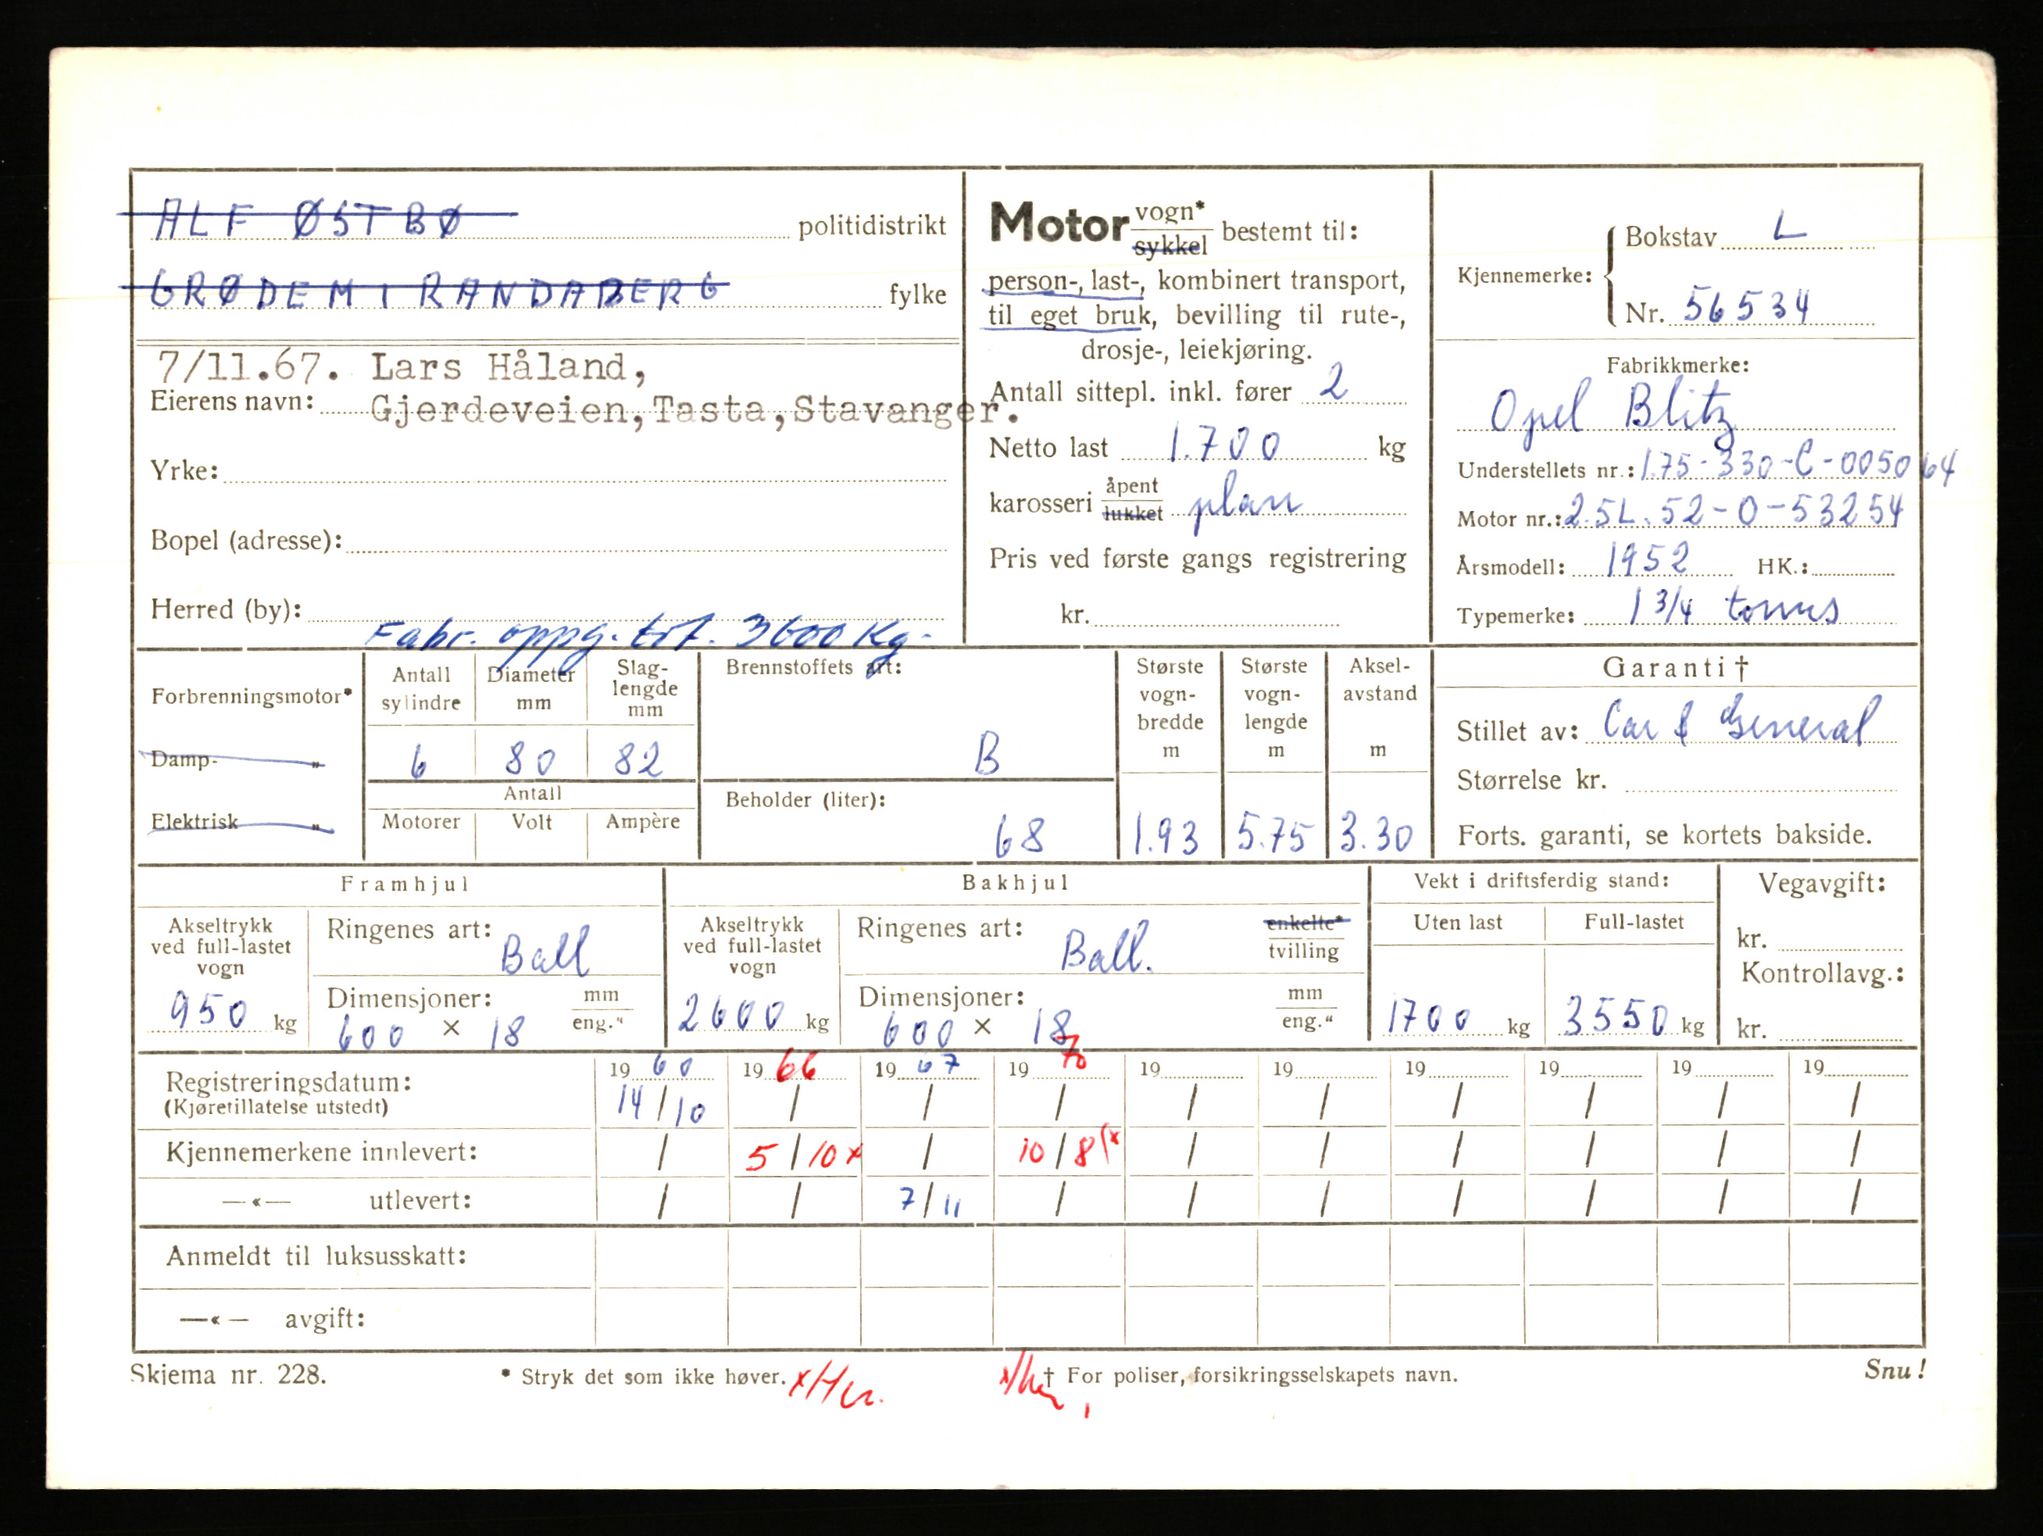 ALF ØSTBØ politidistrikt
GRØDEM I RANDABERG fylke
7/11.67. Lars Håland,
Eierens navn: Gjerdeveien, Tasta, Stavanger.
Yrke:
Bopel (adresse):
Herred (by):
Fabr. oppg. tot. 3600 Kg.
Motor vogn* sykkel bestemt til:
person-, last-, kombinert transport,
til eget bruk, bevilling til rute-,
drosje-, leiekjøring.
Antall sittepl. inkl. fører 2
Netto last 1.700 kg
karosseri åpent lukket plan
Pris ved første gangs registrering
kr.
Kjennemerke: Bokstav L
Nr. 56534
Fabrikkmerke:
Opel Blitz
Understellets nr.: 1.75-330-C-005064
Motor nr.: 2.5L.52-0-53254
Årsmodell: 1952 HK.:
Typemerke: 1 3/4 tonns
Forbrenningsmotor*
Damp- „
Elektrisk „
Antall sylindre Diameter mm Slag-lengde mm
6 80 82
Antall
Motorer Volt Ampère
Brennstoffets art:
B
Beholder (liter):
68
Største vogn-bredde m
1.93
Største vogn-lengde m
5.75
Aksel-avstand m
3.30
Garanti †
Stillet av: Car & General
Størrelse kr.
Forts. garanti, se kortets bakside.
Framhjul
Akseltrykk ved full-lastet vogn
950 kg
Ringenes art: Ball
Dimensjoner: mm eng."
600 × 18
Bakhjul
Akseltrykk ved full-lastet vogn
2600 kg
Ringenes art: Ball. enkelte* tvilling
Dimensjoner: mm eng."
600 × 18
Vekt i driftsferdig stand:
Uten last Full-lastet
1700 kg 3550 kg
Vegavgift:
kr.
Kontrollavg.:
kr.
19 60 19 66 19 67 19 70 19 19 19 19 19 19
Registreringsdatum:
(Kjøretillatelse utstedt) 14/10 / / / / / / / / /
Kjennemerkene innlevert: / 5/10 x / 10/8 (x / / / / / /
—«— utlevert: / / 7/11 / / / / / / /
Anmeldt til luksusskatt:
—«— avgift:
Skjema nr. 228. * Stryk det som ikke høver. † For poliser, forsikringsselskapets navn. Snu!